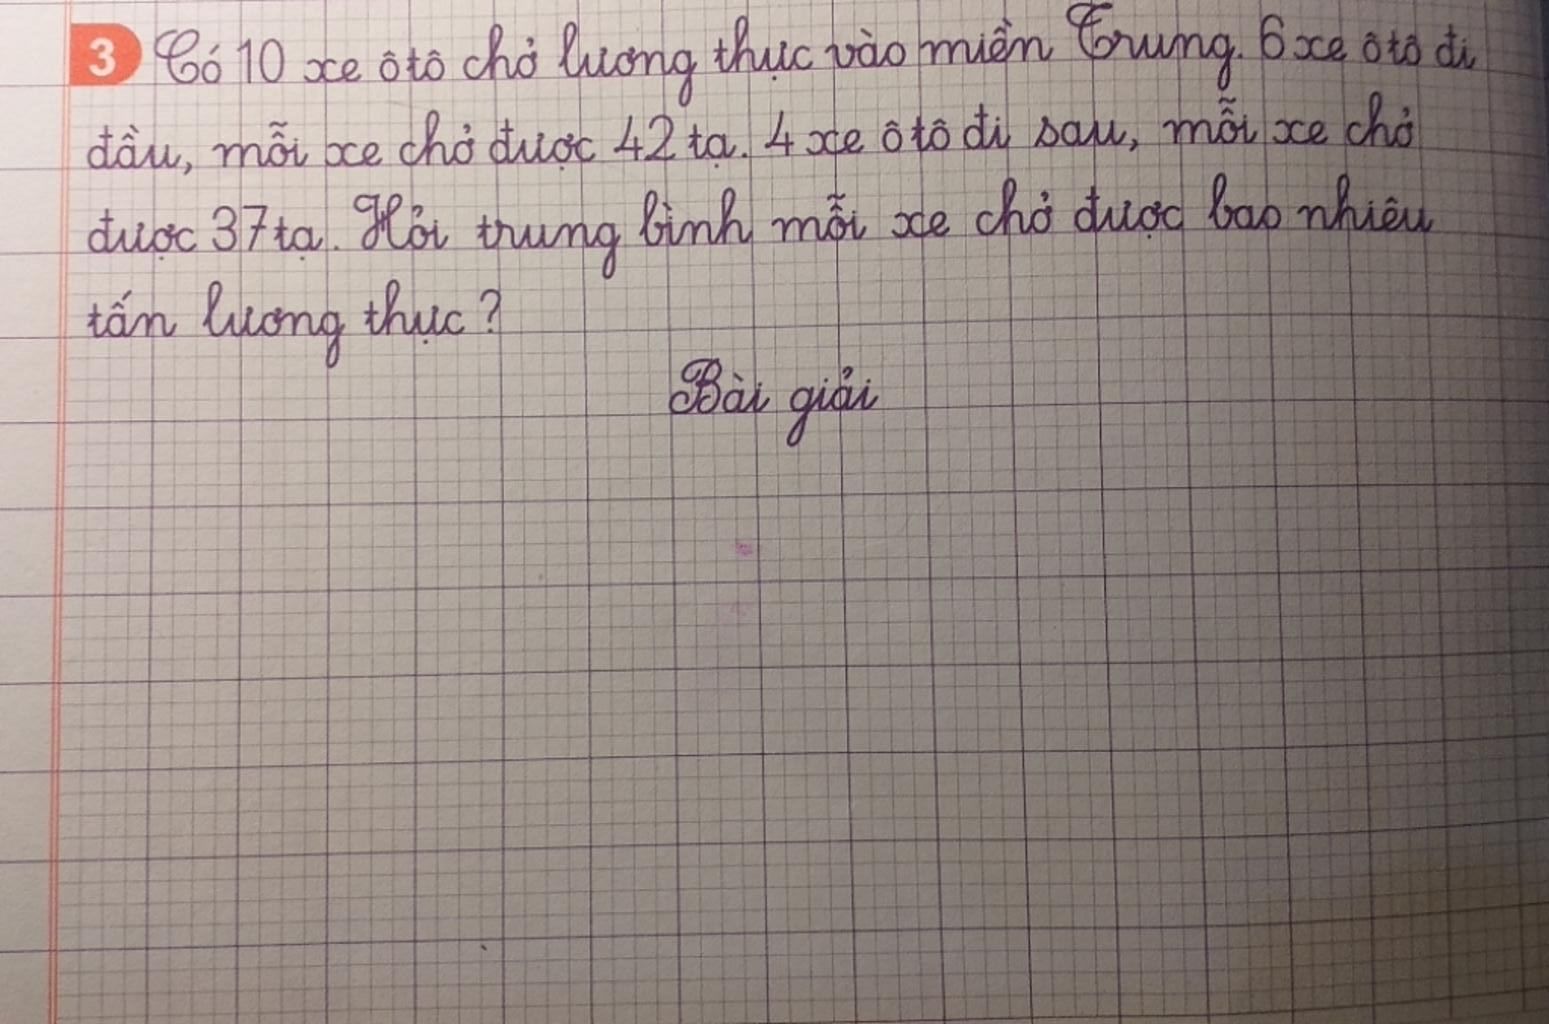 3 Có 10 xe ôtô chở lương thực vào miền Trung. 6 xe ôtô đi
đầu, mỗi xe chở được 42 tạ. 4 xe ôtô đi sau, mỗi xe chở
được 37 tạ. Hỏi trung bình mỗi xe chở được bao nhiêu
tấn lương thực?
Bài giải